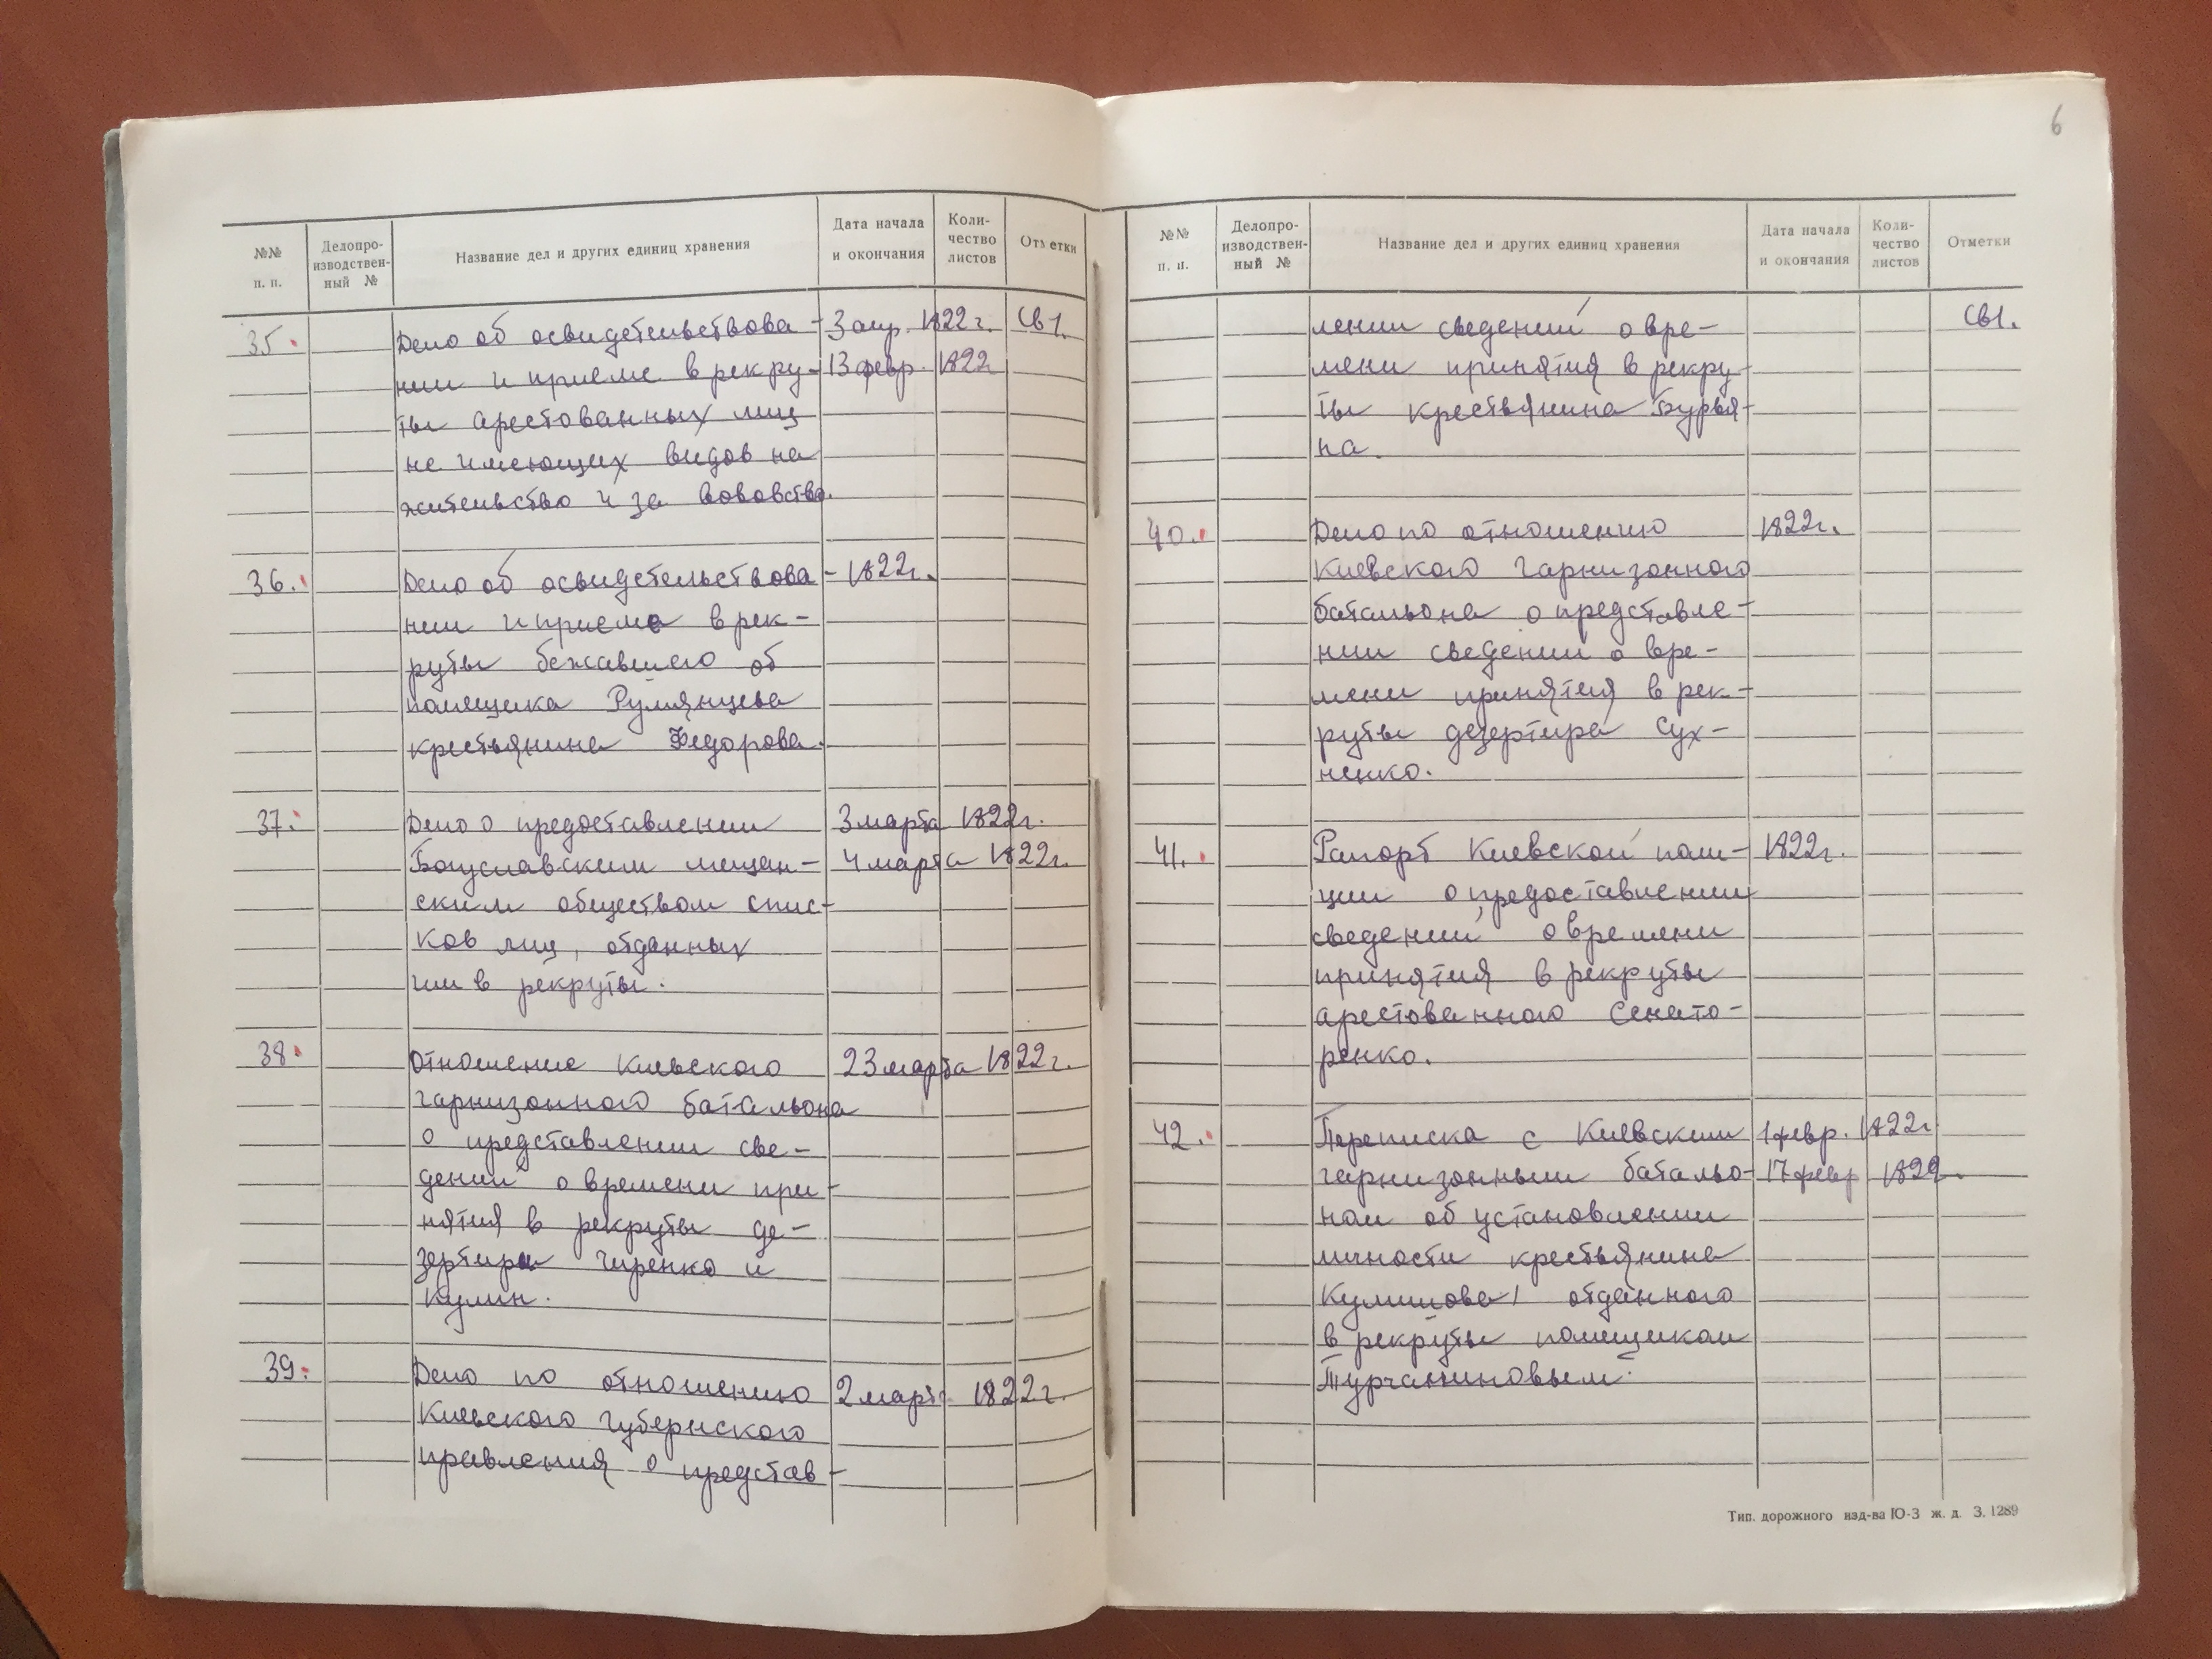 6
№№ п. п.
Делопроизводственный №
Название дел и других единиц хранения
Дата начала и окончания
Количество листов
Отметки
35. Дело об освидетельствова- 3 апр. 1822 г. Св 1.
нии и приеме в рекру- 13 февр. 1822
ты арестованных лиц
не имеющих видов на
жительство и за воровство.
36. Дело об освидетельствова- 1822 г.
нии и приеме в рек-
руты бежавшего об
помещика Румянцева
крестьянина Федорова.
37. Дело о предоставлении 3 марта 1822 г.
Богуславским мещан- 4 марта 1822 г.
ским обществом спис-
ков лиц, отданных
ими в рекруты.
38. Отношение Киевского 23 марта 1822 г.
гарнизонного батальона
о представлении све-
дений о времени при-
нятия в рекруты де-
зертиры Чиренко и
Кулин.
39. Дело по отношению 2 марта 1822 г.
Киевского губернского
правления о представ-
№№ п. п.
Делопроизводственный №
Название дел и других единиц хранения
Дата начала и окончания
Количество листов
Отметки
лении сведений о вре- Св 1.
мени принятия в рекру-
ты крестьянина Бурья-
на.
40. Дело по отношению 1822 г.
Киевского гарнизонного
батальона о представле-
нии сведении о вре-
мени принятия в рек-
руты дезертира Сух-
ненко.
41. Рапорт Киевской поли- 1822 г.
ции о предоставлении
сведений о времени
принятия в рекруты
арестованного Сенато-
ренко.
42. Переписка с Киевским 1 февр. 1822 г.
гарнизонным батальо- 17 февр 1822.
ном об установлении
личности крестьянина
Кулишова, отданного
в рекруты помещиком
Турчаниновым.
Тип. дорожного изд-ва Ю-З ж. д. З. 1289